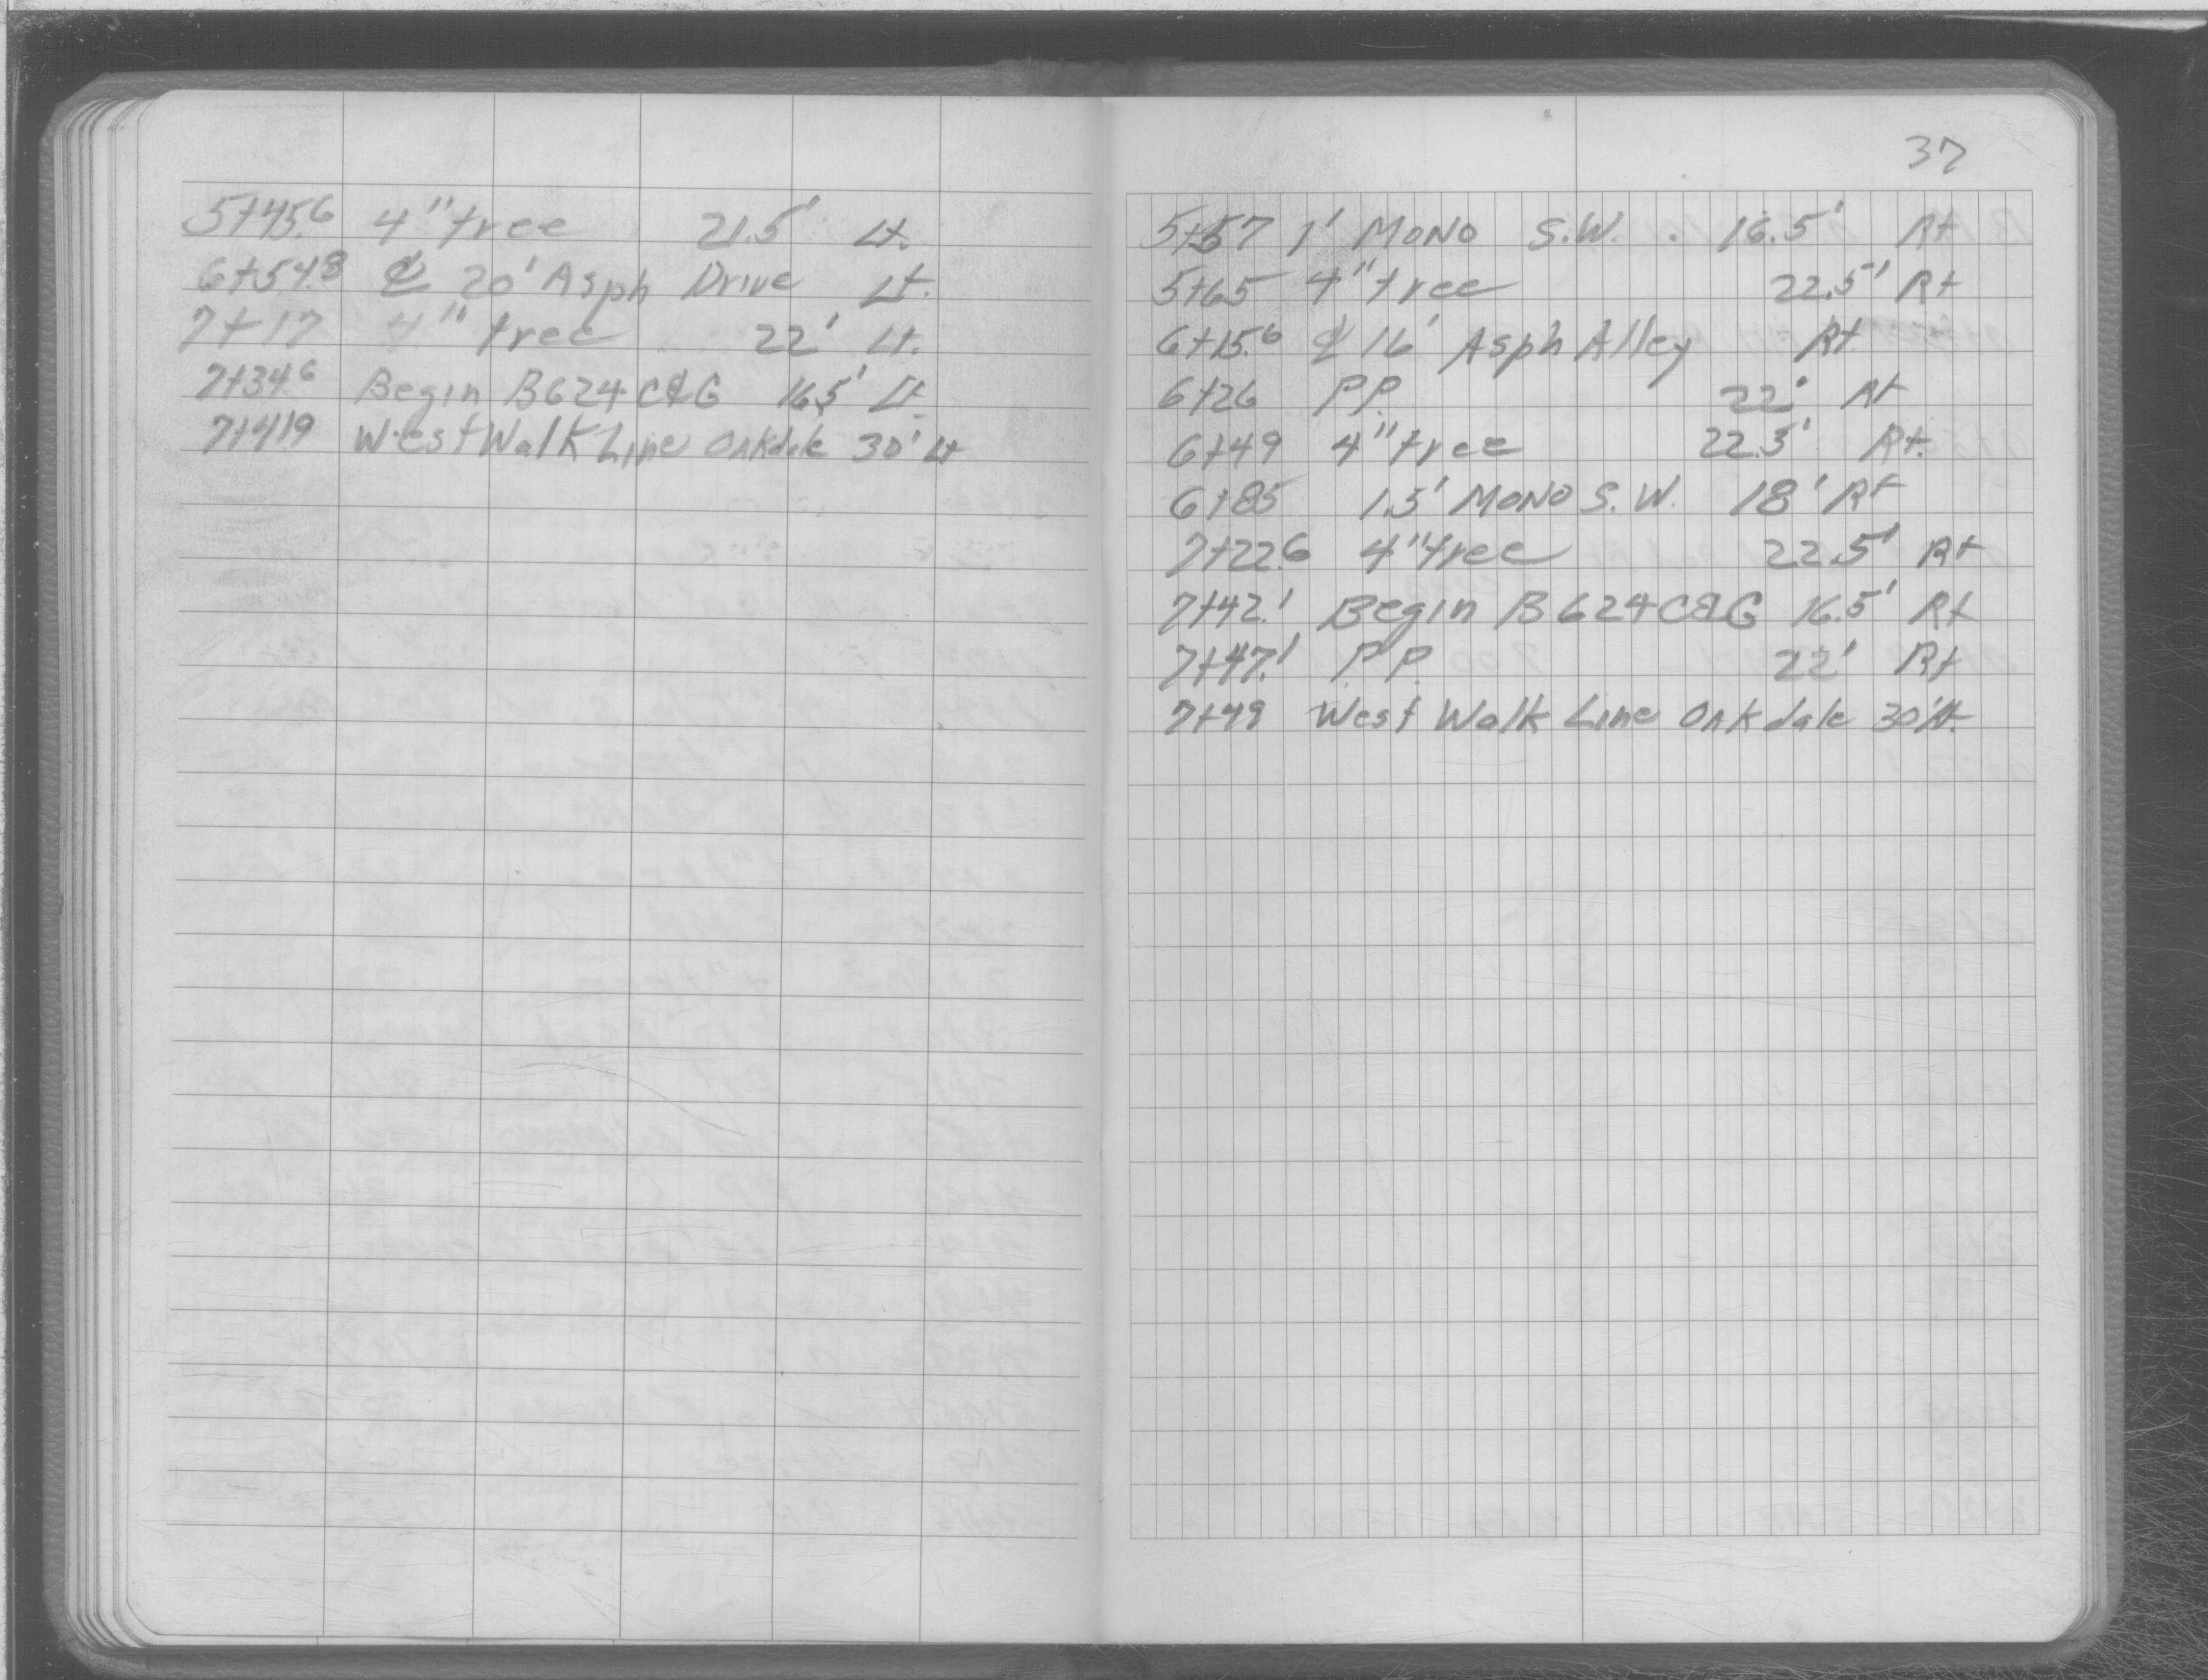 5+45.6 4" tree 21.5' Lt.
6+54.8 ℄ 20' Asph Drive Lt.
7+17 4" tree 22' Lt.
7+34.6 Begin B624 C&G 16.5' Lt.
7+41.9 West Walk Line Oakdale 30' Lt
37
5+57 1' MONO S.W. 16.5' Rt
5+65 4" tree 22.5' Rt
6+15.6 ℄ 16' Asph Alley Rt
6+26 P.P. 22' Rt
6+49 4" tree 22.5' Rt.
6+85 1.5' MONO S.W. 18' Rt
7+22.6 4" tree 22.5' Rt
7+42.1 Begin B624 C&G 16.5' Rt
7+47.1 P.P. 22' Rt
7+49 West Walk Line Oakdale 30' Rt.